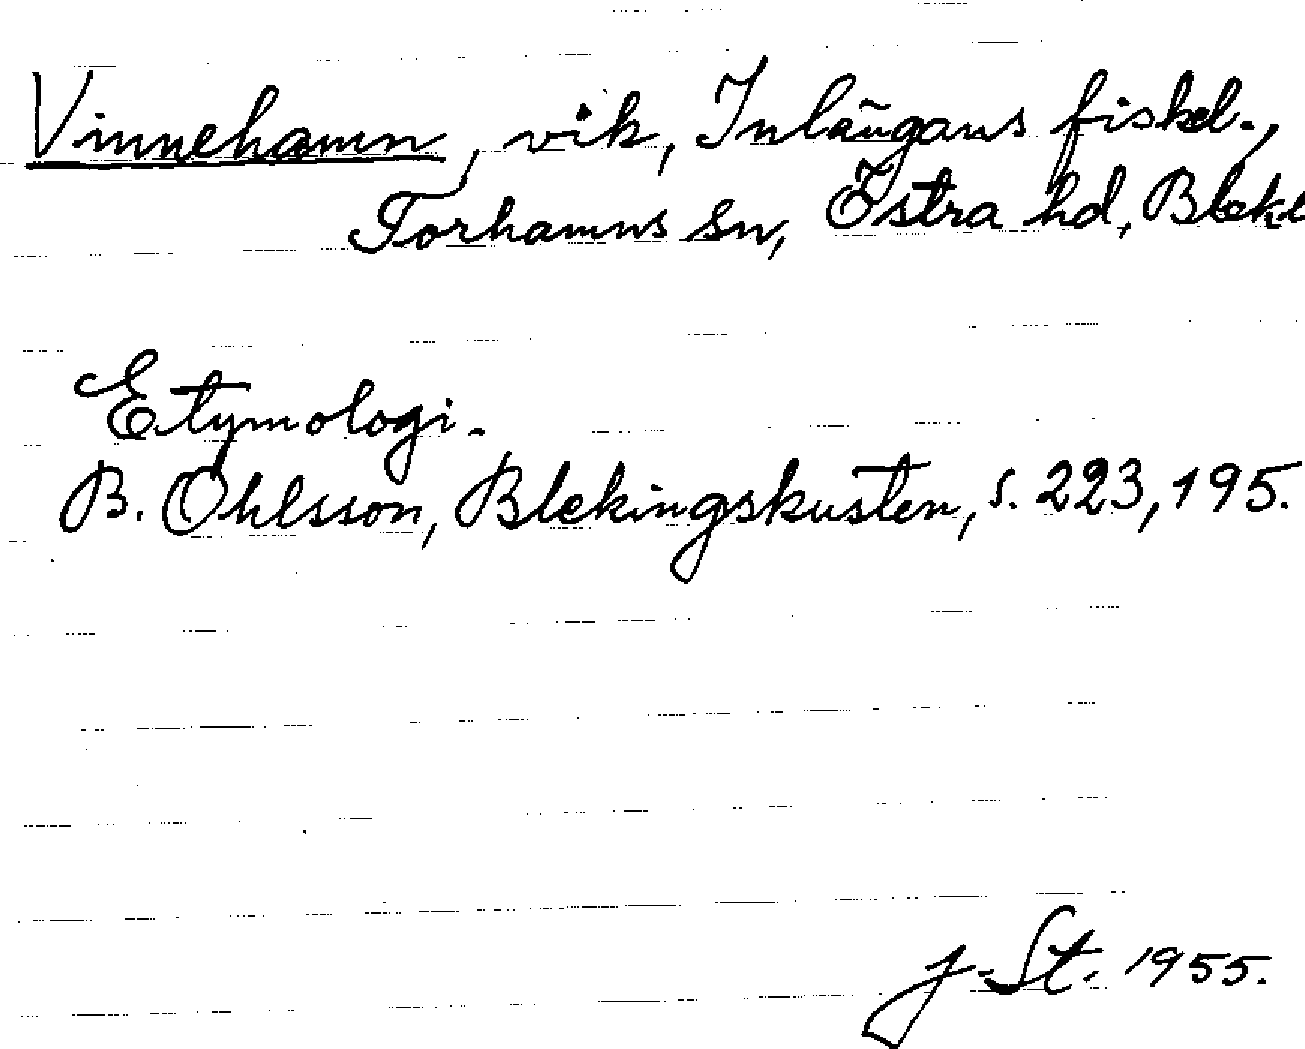 Vinnehamn, vik, Inlängans fiskel.,
Torhamns sn, Östra hd, Blek
Etymologi.
B. Ohlsson, Blekingskusten, s. 223, 195.
J. St. 1955.